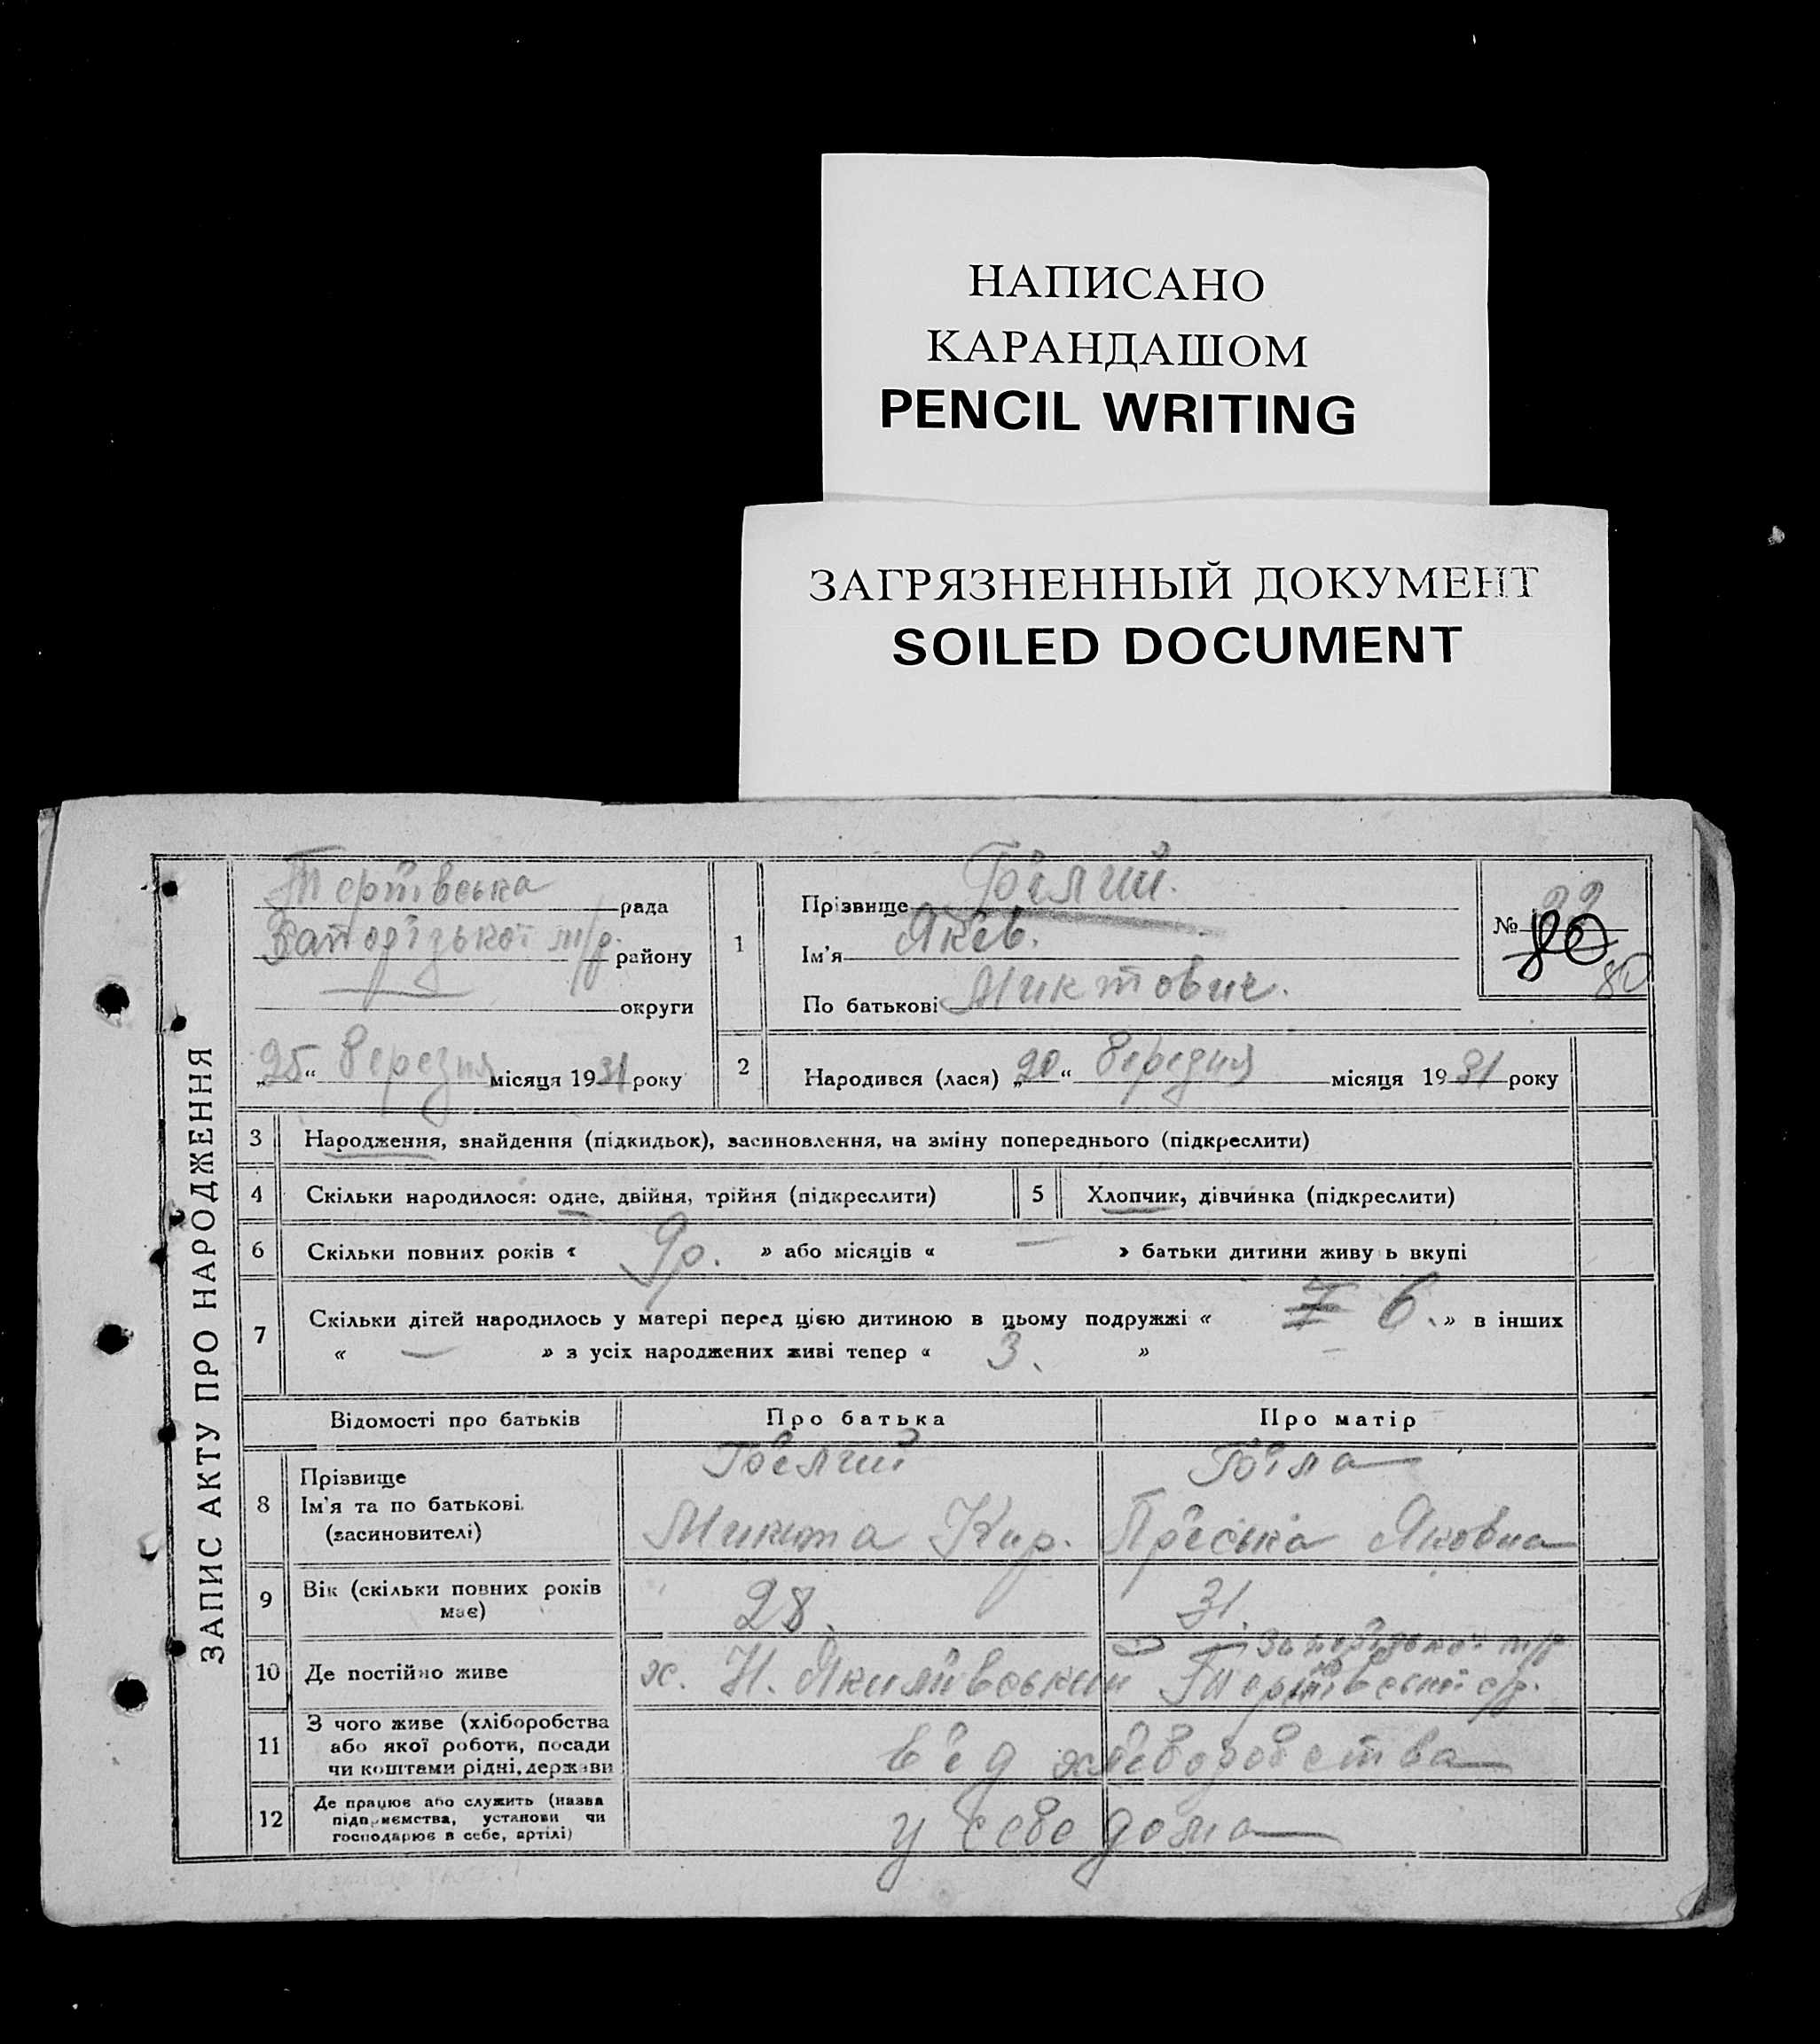 НАПИСАНО
КАРАНДАШОМ
PENCIL WRITING
ЗАГРЯЗНЕННЫЙ ДОКУМЕНТ
SOILED DOCUMENT
ЗАПИС АКТУ ПРО НАРОДЖЕННЯ
рада
Запорізької м/р. району
округи
„25“ березня місяця 1931 року
1
Прізвище Білий.
Ім'я Яків.
По батькові Микитович.
№ 80
80
2 Народився (лася) „20“ березня місяця 1931 року
3 Народження, знайдення (підкидьок), засиновлення, на зміну попереднього (підкреслити)
4 Скільки народилося: одне, двійня, трійня (підкреслити) 5 Хлопчик, дівчинка (підкреслити)
6 Скільки повних років « 9р. » або місяців « — » батьки дитини живу ь вкупі
7 Скільки дітей народилось у матері перед цією дитиною в цьому подружжі « 7 6. » в інших
« — » з усіх народжених живі тепер « 3. »
Відомості про батьків Про батька Про матір
8 Прізвище Білий Біла
Ім'я та по батькові Микита Кир. Пріська Яковна
(засиновителі)
9 Вік (скільки повних років має) 28. 31.
Запорізької м/р
10 Де постійно живе х. Н. Якимівський с/р.
11 З чого живе (хліборобства або якої роботи, посади чи коштами рідні, держави від хліборобства
12 Де працює або служить (назва підприємства, установи чи господарює в себе, артілі) у себе дома